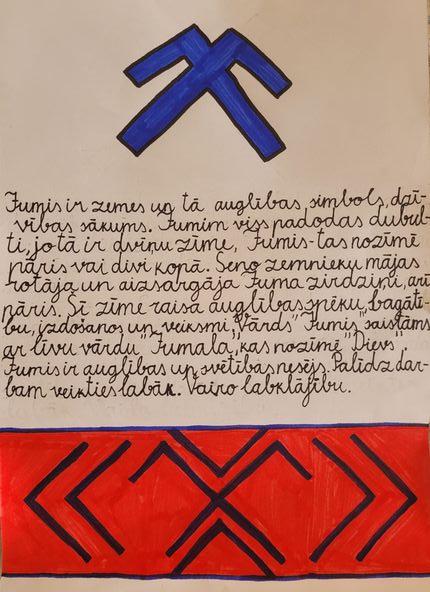 Jumis ir zemes un tā auglības, simbols, dzī-
vības sākums. Jumim viss padodas dubul-
ti, jo tā ir dvīņu zīme, Jumis-tas nozīmē
pāris vai divi kopā. Seno zemnieku mājas
rotāja un aizsargāja Juma zirdziņi, arī
pāris. Šī zīme raisa auglības spēku, bagātī-
bu, izdošanos un veiksmi. Vārds "Jumis" saistāms
ar līvu vārdu "Jumala", kas nozīmē "Dievs".
Jumis ir auglības un svētības nesējs. Palīdz dar-
bam veikties labāk. Vairo labklājību.